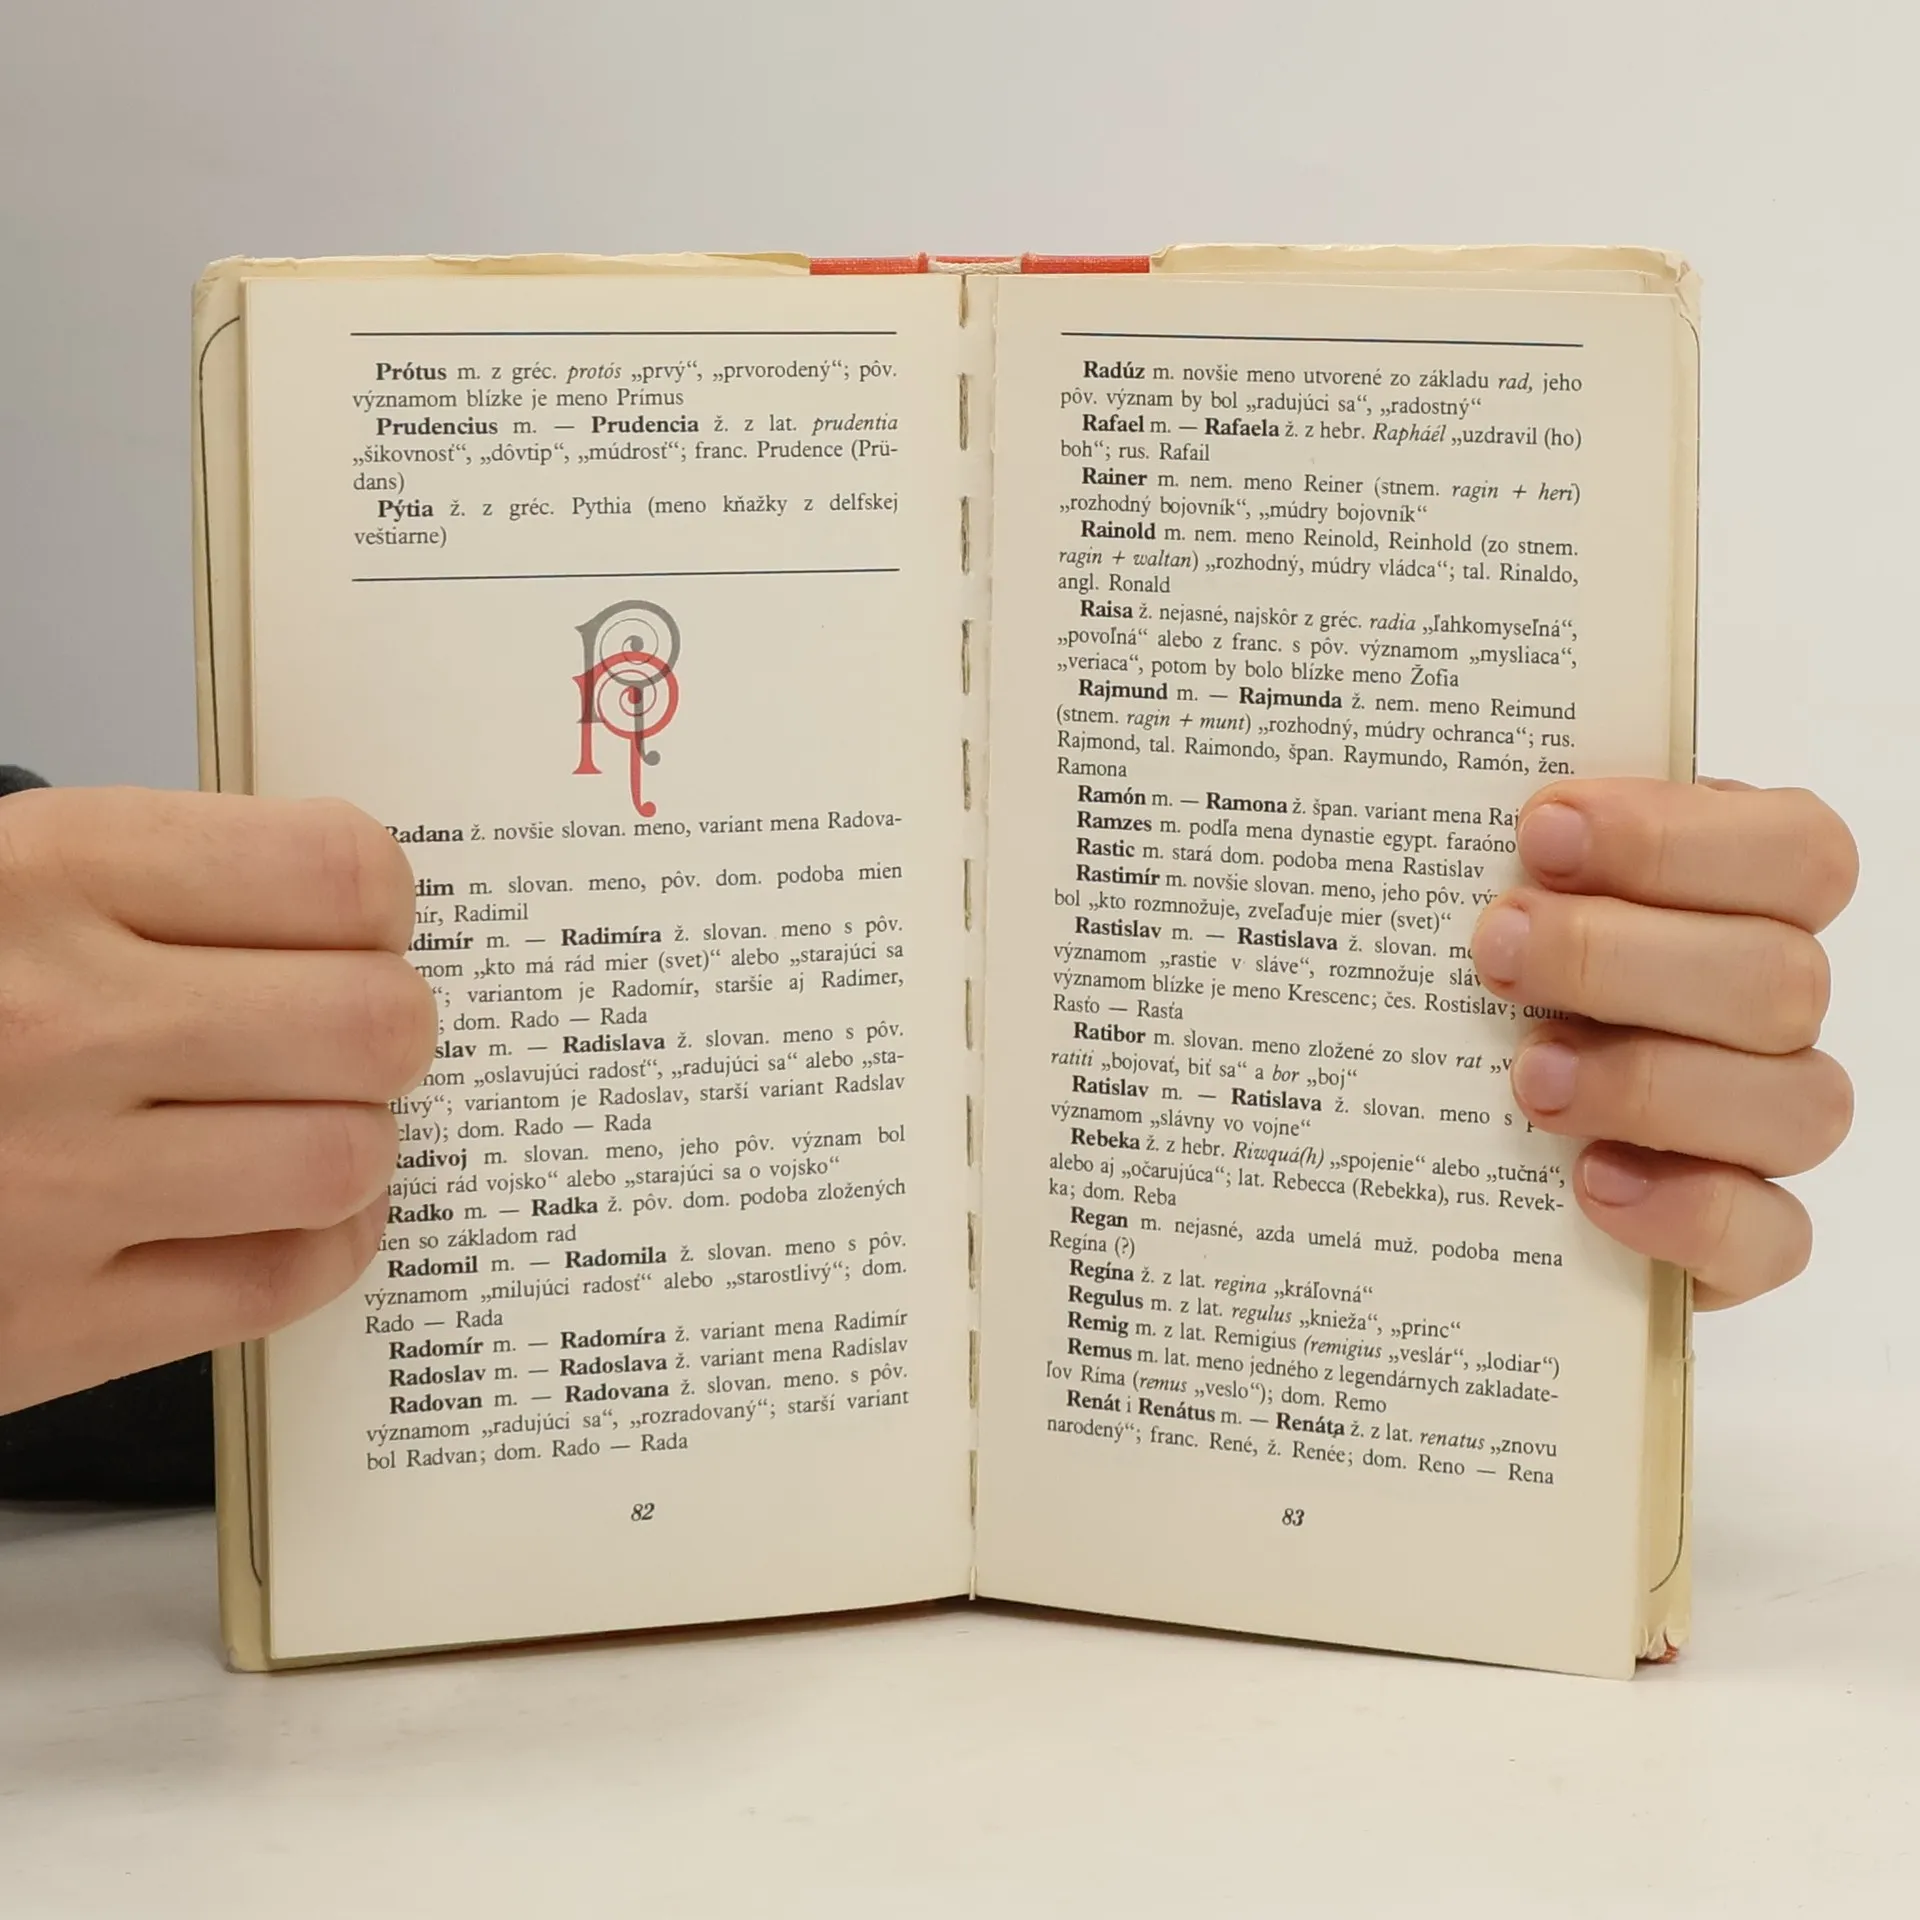 Prótus m. z gréc. protós „prvý“, „prvorodený“; pôv.
významom blízke je meno Prímus
Prudencius m. — Prudencia ž. z lat. prudentia
„šikovnosť“, „dôvtip“, „múdrosť“; franc. Prudence (Prü-
dans)
Pýtia ž. z gréc. Pythia (meno kňažky z delfskej
veštiarne)
R
R
Radana ž. novšie slovan. meno, variant mena Radova-
m. slovan. meno, pôv. dom. podoba mien
Radimil
m. — Radimíra ž. slovan. meno s pôv.
„kto má rád mier (svet)“ alebo „starajúci sa
“; variantom je Radomír, staršie aj Radimer,
; dom. Rado — Rada
m. — Radislava ž. slovan. meno s pôv.
„oslavujúci radosť“, „radujúci sa“ alebo „sta-
tlivý“; variantom je Radoslav, starší variant Radslav
clav); dom. Rado — Rada
Radivoj m. slovan. meno, jeho pôv. význam bol
rád vojsko“ alebo „starajúci sa o vojsko“
Radko m. — Radka ž. pôv. dom. podoba zložených
mien so základom rad
Radomil m. — Radomila ž. slovan. meno s pôv.
významom „milujúci radosť“ alebo „starostlivý“; dom.
Rado — Rada
Radomír m. — Radomíra ž. variant mena Radimír
Radoslav m. — Radoslava ž. variant mena Radislav
Radovan m. — Radovana ž. slovan. meno. s pôv.
významom „radujúci sa“, „rozradovaný“; starší variant
bol Radvan; dom. Rado — Rada
82
Radúz m. novšie meno utvorené zo základu rad, jeho
pôv. význam by bol „radujúci sa“, „radostný“
Rafael m. — Rafaela ž. z hebr. Rapháél „uzdravil (ho)
boh“; rus. Rafail
Rainer m. nem. meno Reiner (stnem. ragin + heri)
„rozhodný bojovník“, „múdry bojovník“
Rainold m. nem. meno Reinold, Reinhold (zo stnem.
ragin + waltan) „rozhodný, múdry vládca“; tal. Rinaldo,
angl. Ronald
Raisa ž. nejasné, najskôr z gréc. radia „ľahkomyseľná“,
„povoľná“ alebo z franc. s pôv. významom „mysliaca“,
„veriaca“, potom by bolo blízke meno Žofia
Rajmund m. — Rajmunda ž. nem. meno Reimund
(stnem. ragin + munt) „rozhodný, múdry ochranca“; rus.
Rajmond, tal. Raimondo, špan. Raymundo, Ramón, žen.
Ramona
Ramón m. — Ramona ž. špan. variant mena Raj
Ramzes m. podľa mena dynastie egypt. faraóno
Rastic m. stará dom. podoba mena Rastislav
Rastimír m. novšie slovan. meno, jeho pôv. vý
bol „kto rozmnožuje, zveľaďuje mier (svet)“
Rastislav m. — Rastislava ž. slovan. me
významom „rastie v sláve“, rozmnožuje sláv
významom blízke je meno Krescenc; čes. Rostislav; dom.
Rasťo — Rasťa
Ratibor m. slovan. meno zložené zo slov rat „v
ratiti „bojovať, biť sa“ a bor „boj“
Ratislav m. — Ratislava ž. slovan. meno s
významom „slávny vo vojne“
Rebeka ž. z hebr. Riwquá(h) „spojenie“ alebo „tučná“,
alebo aj „očarujúca“; lat. Rebecca (Rebekka), rus. Revek-
ka; dom. Reba
Regan m. nejasné, azda umelá muž. podoba mena
Regína (?)
Regína ž. z lat. regina „kráľovná“
Regulus m. z lat. regulus „knieža“, „princ“
Remig m. z lat. Remigius (remigius „veslár“, „lodiar“)
Remus m. lat. meno jedného z legendárnych zakladate-
ľov Ríma (remus „veslo“); dom. Remo
Renát i Renátus m. — Renáta ž. z lat. renatus „znovu
narodený“; franc. René, ž. Renée; dom. Reno — Rena
83